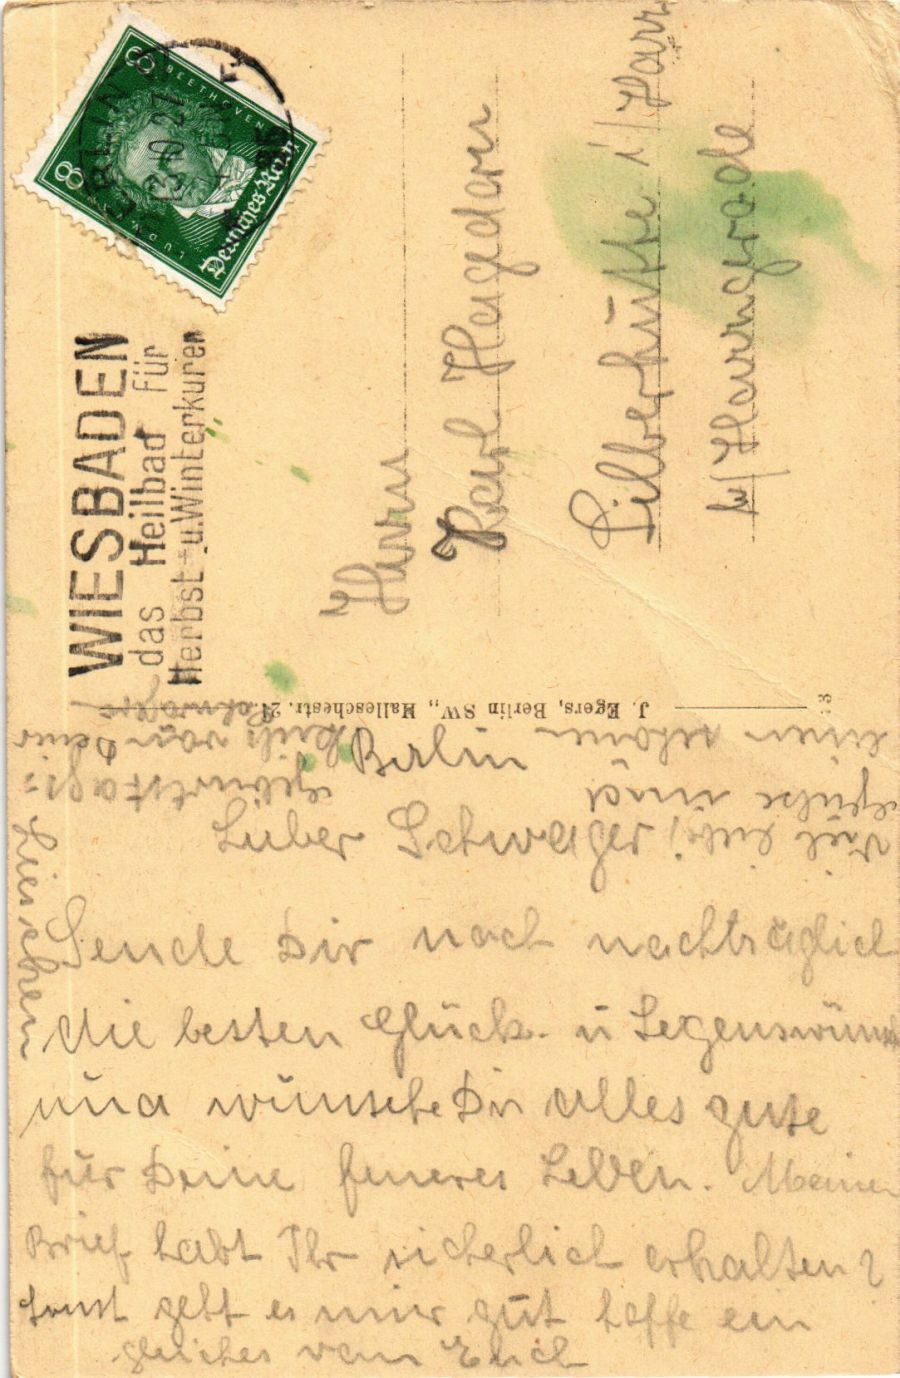 8 BEETHOVEN
8 LUDW. V.
Deutsches Reich
BERLIN
3.10.27
WIESBADEN
das Heilbad für
Herbst- u. Winterkuren
Herrn
Karl Hagedorn
Silberhütte i/Harz
b/Harzgerode
J. Egers, Berlin SW., Halleschestr. 21.
Berlin
Lieber Schwager!
Sende Dir noch nachträglich
die besten Glück- u Segenswünsche
und wünsche Dir alles gute
für Deine ferneres Leben. Meinen
Brief habt Ihr sicherlich erhalten?
sonst geht es mir gut hoffe ein
gleiches vom Euch
Viel liebe
Grüße und
einen schönen
Geburtstags
Kuß von Deiner
Schwägerin
Lieschen